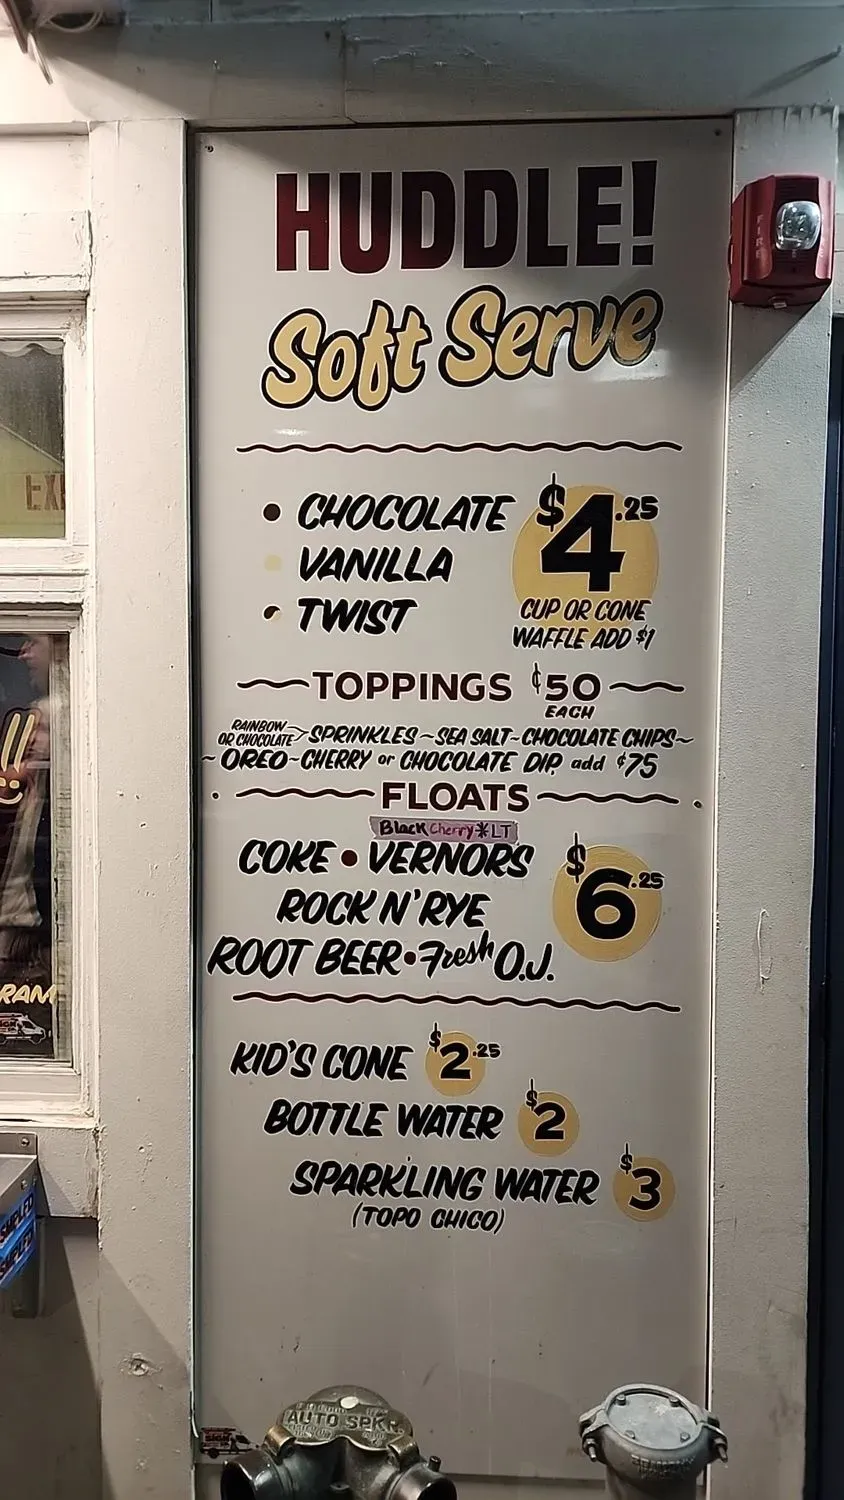 HUDDLE!
Soft Serve
• CHOCOLATE $4.25
VANILLA
• TWIST
CUP OR CONE
WAFFLE ADD $1
TOPPINGS ¢50
EACH
RAINBOW OR CHOCOLATE SPRINKLES ~ SEA SALT ~ CHOCOLATE CHIPS ~
~ OREO ~ CHERRY or CHOCOLATE DIP, add ¢75
FLOATS
Black Cherry * LT
COKE • VERNORS $6.25
ROCK N' RYE
ROOT BEER • Fresh O.J.
KID'S CONE $2.25
BOTTLE WATER $2
SPARKLING WATER $3
(TOPO CHICO)
FIRE
AUTO SPKR